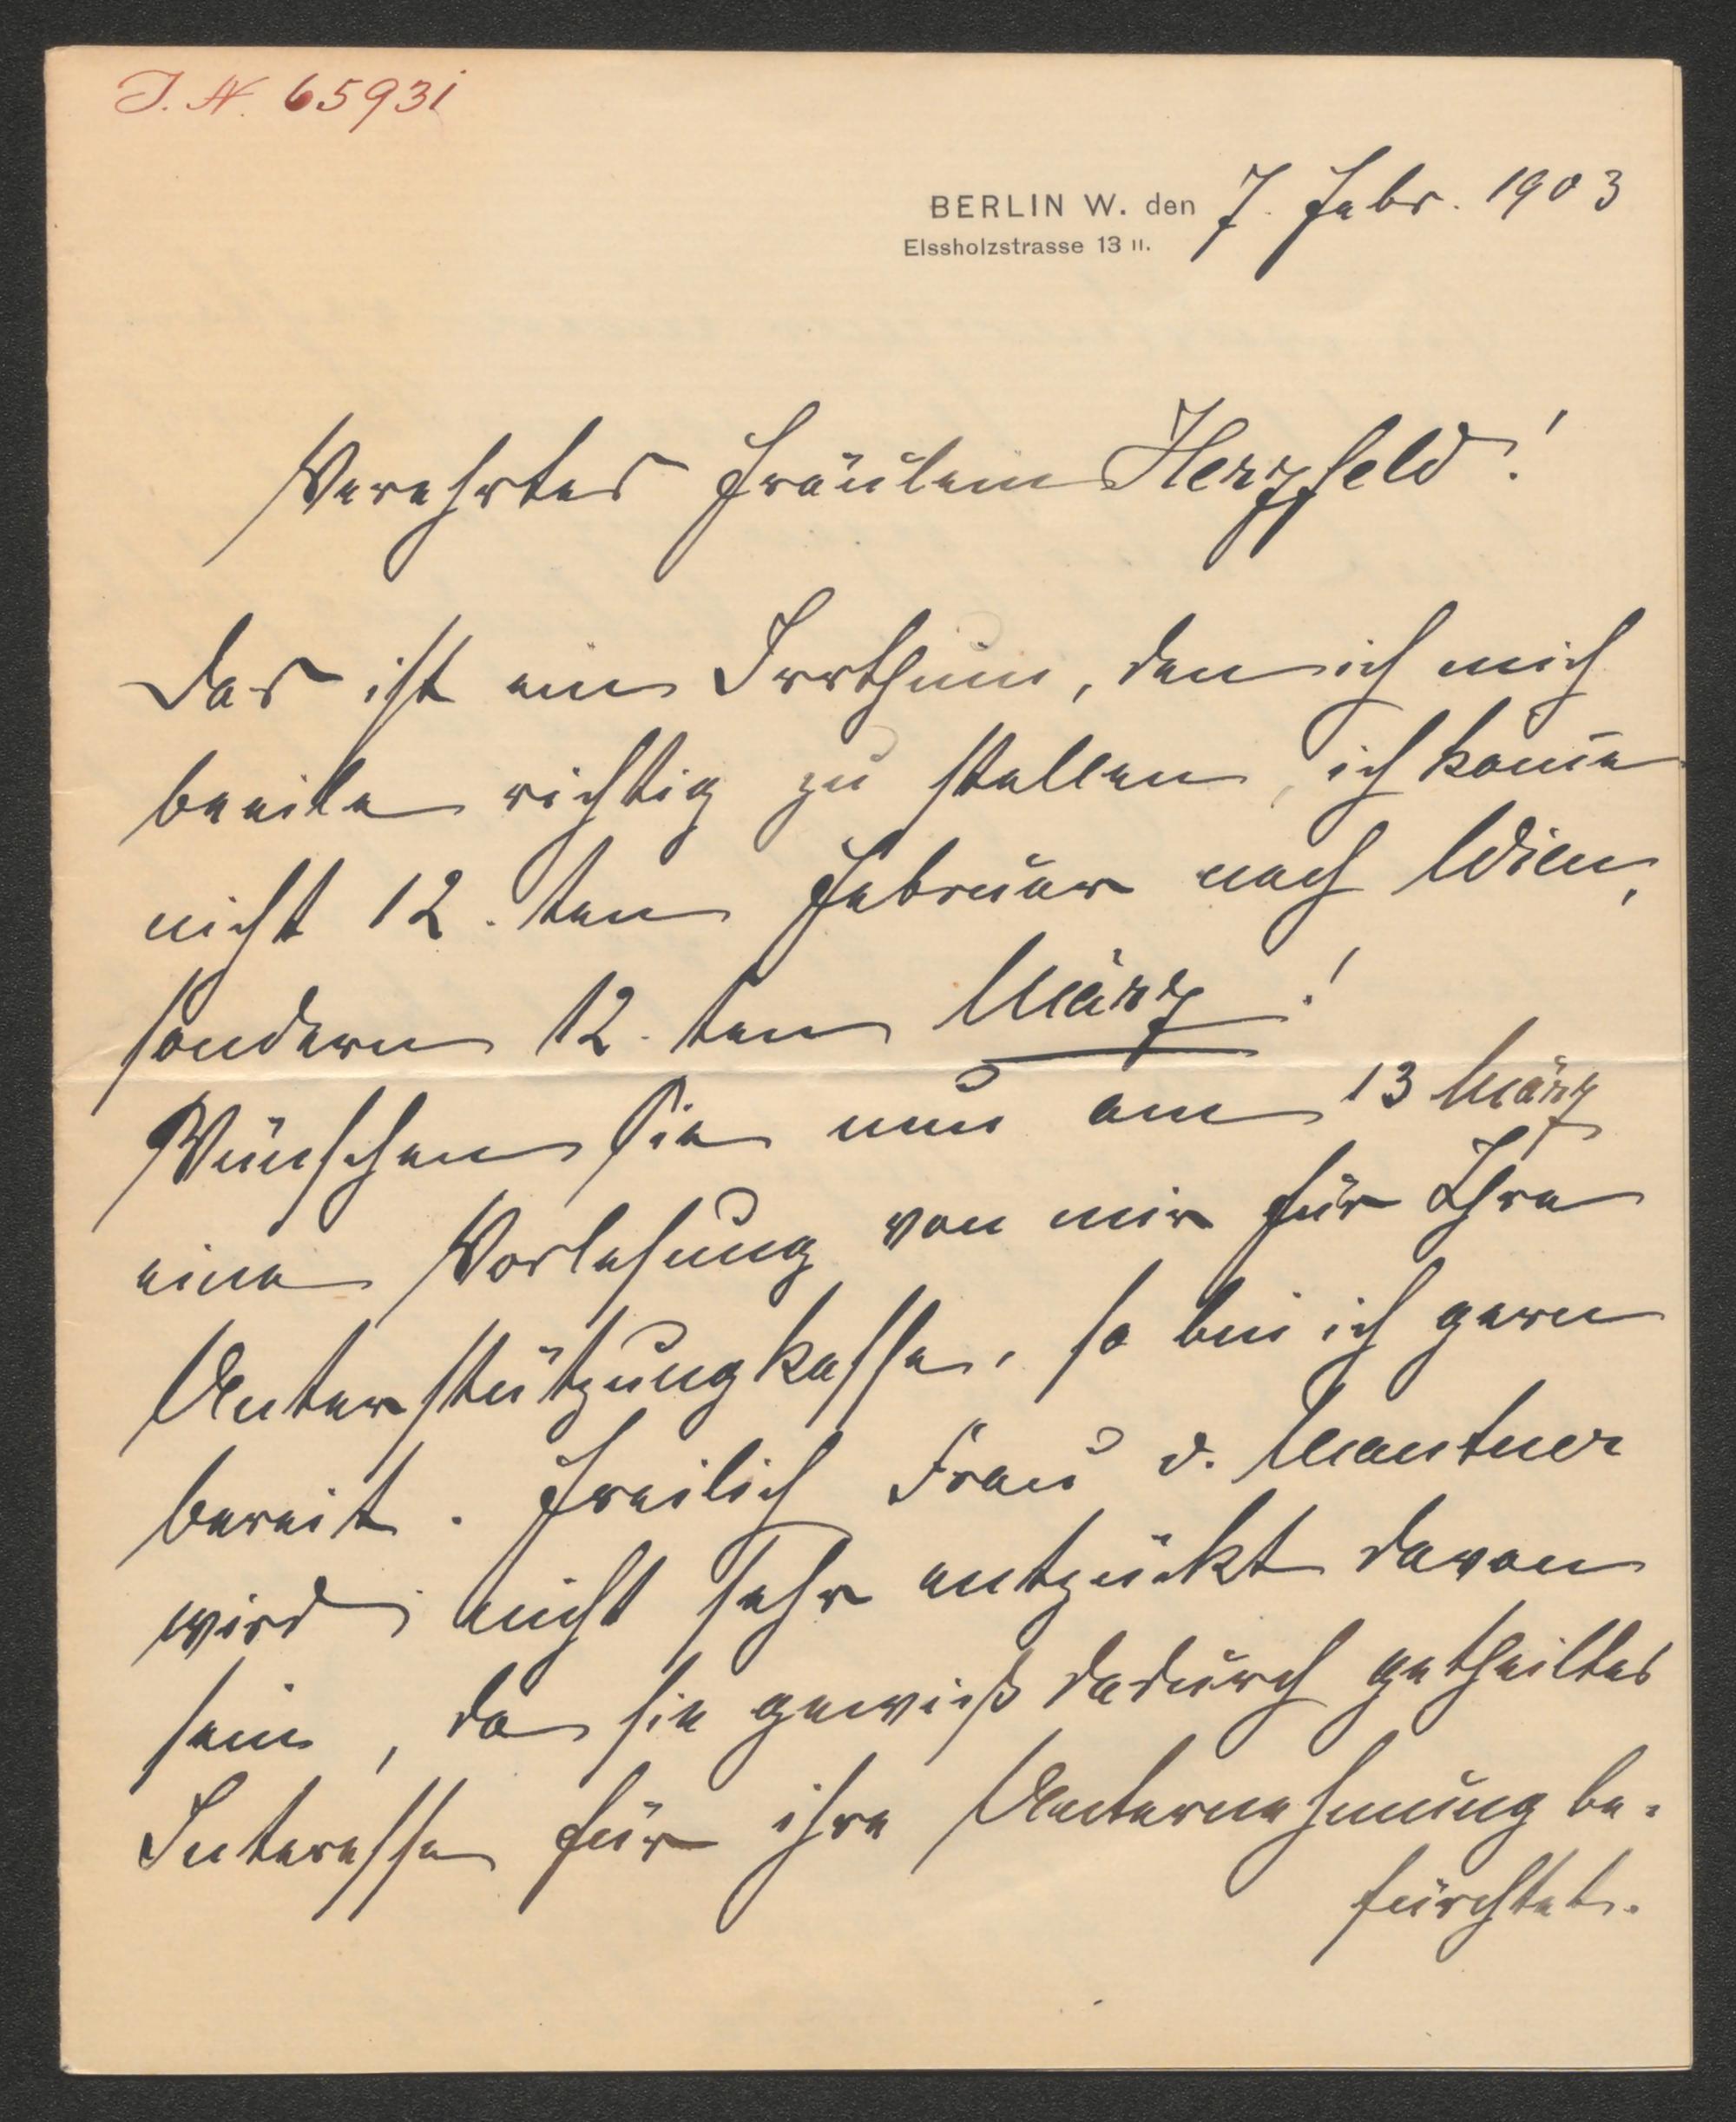 J. N. 65931
BERLIN W. den 7. Febr. 1903
Elssholzstrasse 13 II.
Verehrtes Fräulein Herzfeld!
Das ist ein Irrthum, den ich mich
beeile richtig zu stellen, ich kom̄e
nicht 12. ten Februar nach Wien,
sondern 12. ten März!
Wünschen Sie nun am 13 März
eine Vorlesung von mir für Ihre
Unterstützungkasse, so bin ich gern
bereit. Freilich Frau v. Mautner
wird nicht sehr entzückt davon
sein, da sie gewiß dadurch getheiltes
Interesse für ihre Unternehmung be-
fürchtet.